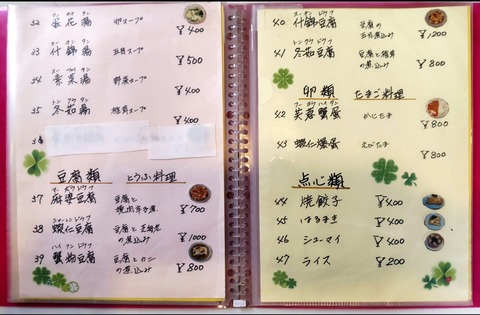 32 蛋花湯 卵スープ ¥400
33 什錦湯 五目スープ ¥500
34 素菜湯 野菜スープ ¥400
35 冬茹湯 椎茸スープ ¥400
36
豆腐類 とうふ料理
37 麻婆豆腐 豆腐と
¥700
38 蝦仁豆腐 豆腐と
の煮込み ¥1000
39 蟹肉豆腐 豆腐とカニ
の煮込み ¥800
40 什錦豆腐 豆腐の
五目煮込み ¥1200
41 冬茹豆腐 豆腐と椎茸
の煮込み ¥800
卵類 たまご料理
42 芙蓉蟹蛋 かにたま
¥800
43 蝦仁爆蛋 えびたま
¥800
点心類
44 焼餃子 ¥400
45 はるまき ¥400
46 シューマイ ¥400
47 ライス ¥200